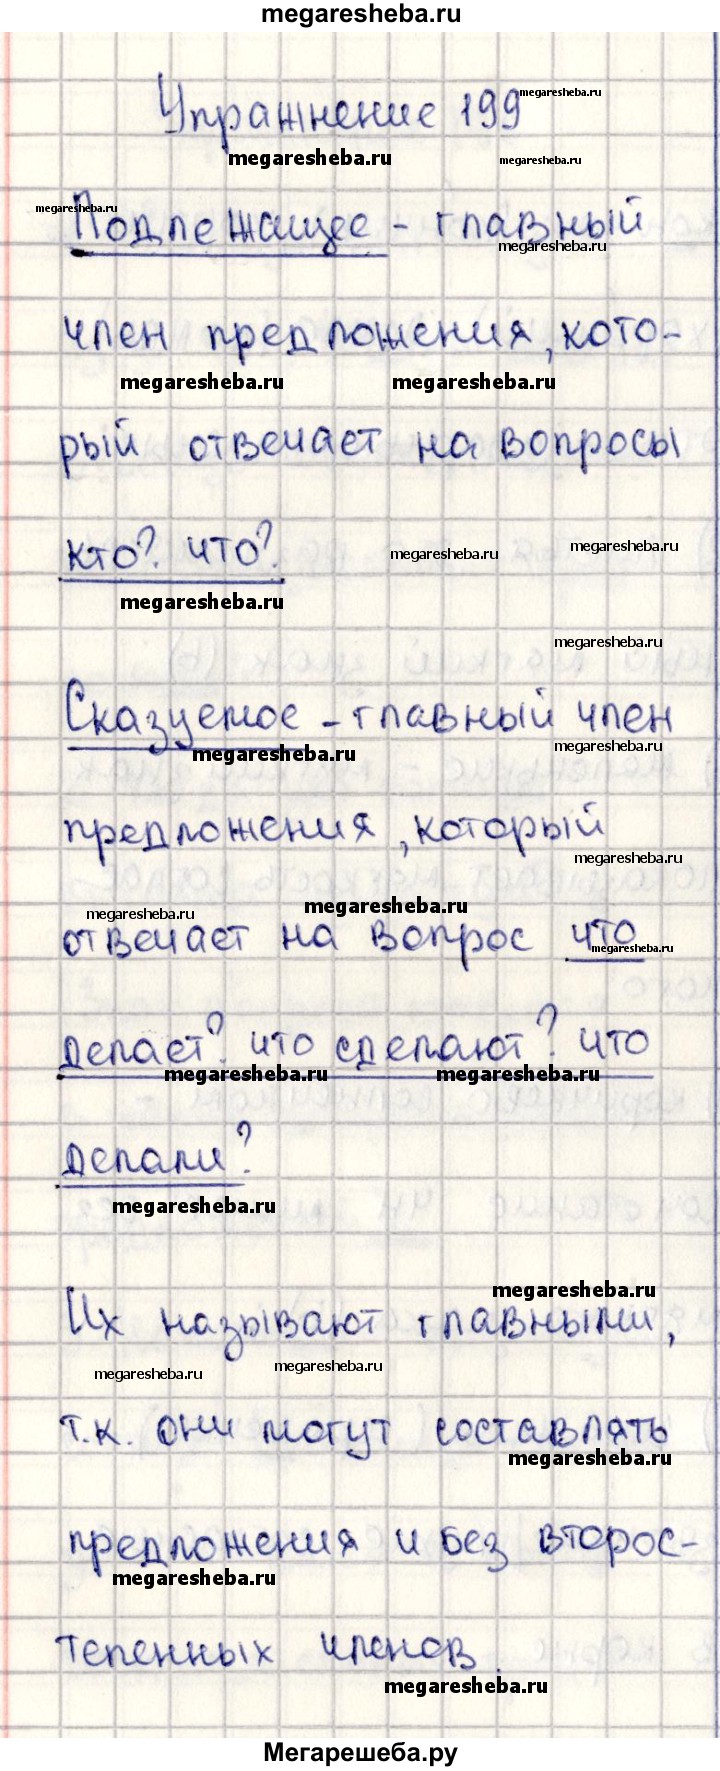 megaresheba.ru
Упражнение 199
Подлежащее - главный
член предложения, кото-
рый отвечает на вопросы
кто? что?
Сказуемое - главный член
предложения, который
отвечает на вопрос что
делает? что сделают? что
делали?
Их называют главными,
т.к. они могут составлять
предложения и без второс-
тепенных членов.
Мегарешеба.ру